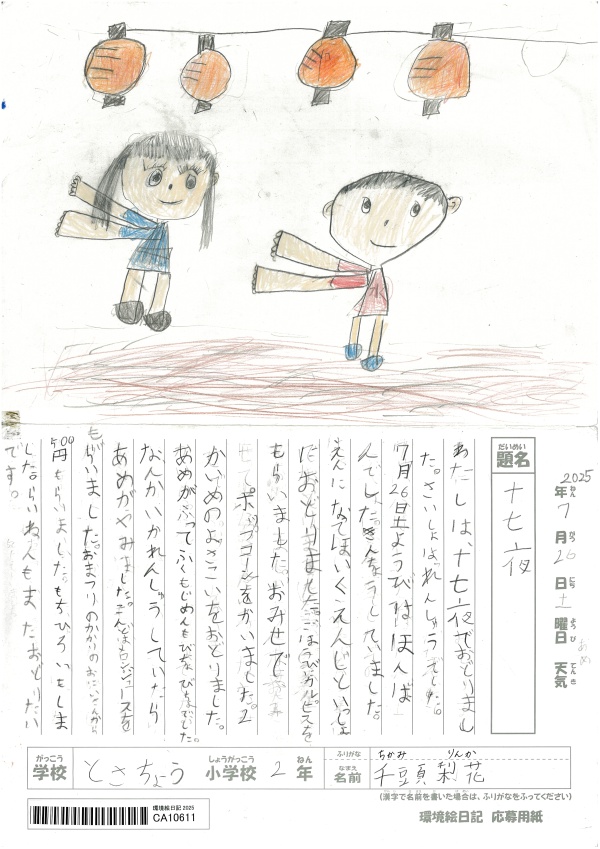 2025
年 7 月 26 日 土 曜日 天気 あめ
ねん がつ にち よう び てん き
だいめい
題名
十七夜
わたしは、十七夜でおどりまし
た。さいしょはれんしゅうでした。
7月26日土ようびはほんば
んでした。きんちょうしていました。
えんになてほいくえんじといっしょ
におどりました。ごほうびカルピスを
もらいました。おみせで
ポップコーンをかいました。2
かいめのよさこいをおどりました。
あめがふってふくもじめんもびちゃびちゃでした。
なんかいかれんしゅうしていたら
あめがやみました。こんどはジュースを
もらいました。おまつりのかかりのおにいさんから
500円もらいました。もちひろいもしま
した。らいねんもまたおどりたい
です。
がっこう
学校
とさちょう
しょうがっこう
小学校
2
ねん
年
ふりがな
ちかみ りんか
なまえ
名前
千頭 梨花
(漢字で名前を書いた場合は、ふりがなをふってください)
環境絵日記 応募用紙
環境絵日記 2025
CA10611